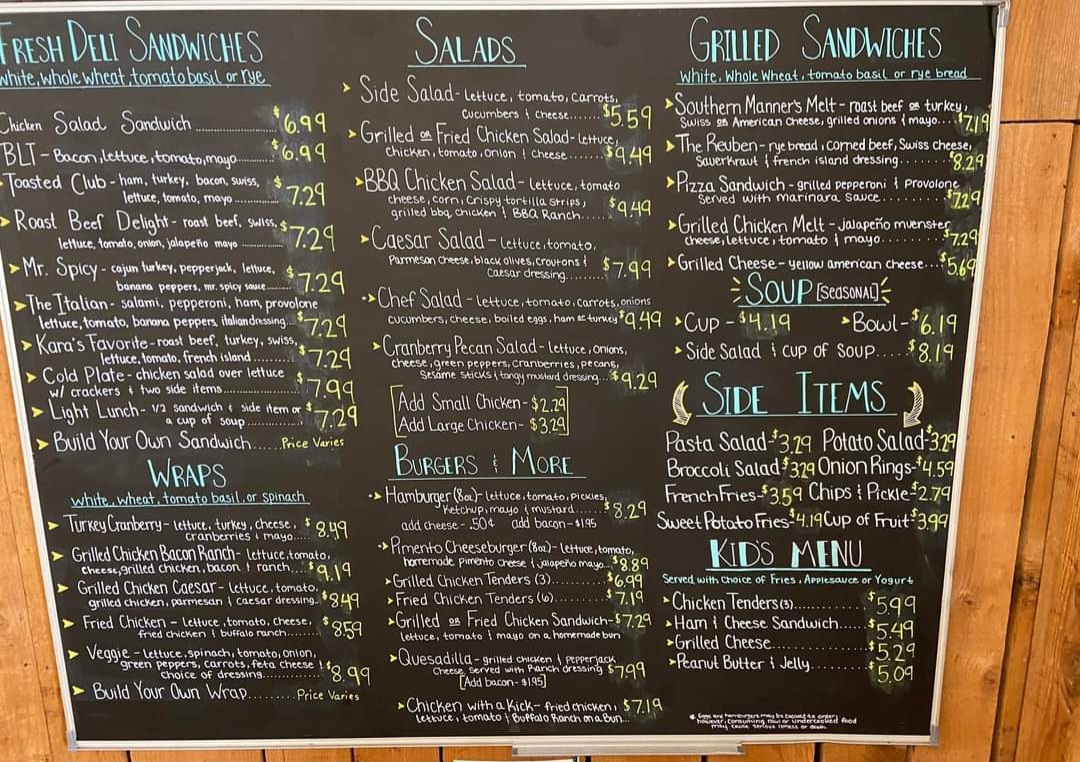 FRESH DELI SANDWICHES
white, whole wheat, tomato basil or rye
Chicken Salad Sandwich ........ $6.99
BLT - Bacon, lettuce, tomato, mayo ........ $6.99
Toasted Club - ham, turkey, bacon, swiss,
lettuce, tomato, mayo ........ $7.29
Roast Beef Delight - roast beef, swiss,
lettuce, tomato, onion, jalapeño mayo ........ $7.29
Mr. Spicy - cajun turkey, pepperjack, lettuce,
banana peppers, mr. spicy sauce ........ $7.29
The Italian - salami, pepperoni, ham, provolone
lettuce, tomato, banana peppers, italian dressing... $7.29
Kara's Favorite - roast beef, turkey, swiss,
lettuce, tomato, french island ........ $7.29
Cold Plate - chicken salad over lettuce
w/ crackers & two side items ........ $7.99
Light Lunch - 1/2 sandwich & side item or
a cup of soup ........ $7.29
Build Your Own Sandwich ..... Price Varies
WRAPS
white, wheat, tomato basil, or spinach
Turkey Cranberry - lettuce, turkey, cheese,
cranberries & mayo.... $8.49
Grilled Chicken Bacon Ranch - lettuce, tomato,
cheese, grilled chicken, bacon & ranch.... $9.19
Grilled Chicken Caesar - lettuce, tomato,
grilled chicken, parmesan & caesar dressing. $8.49
Fried Chicken - lettuce, tomato, cheese,
fried chicken & buffalo ranch........ $8.59
Veggie - lettuce, spinach, tomato, onion,
green peppers, carrots, feta cheese &
choice of dressing........ $8.99
Build Your Own Wrap......... Price Varies
SALADS
Side Salad - lettuce, tomato, carrots,
cucumbers & cheese...... $5.59
Grilled OR Fried Chicken Salad - lettuce,
chicken, tomato, onion & cheese...... $9.49
BBQ Chicken Salad - lettuce, tomato
cheese, corn, crispy tortilla strips,
grilled bbq chicken & BBQ Ranch..... $9.49
Caesar Salad - lettuce, tomato,
Parmesan cheese, black olives, croutons &
Caesar dressing....... $7.99
Chef Salad - lettuce, tomato, carrots, onions
cucumbers, cheese, boiled eggs, ham or turkey $9.49
Cranberry Pecan Salad - lettuce, onions,
cheese, green peppers, cranberries, pecans,
sesame sticks & tangy mustard dressing... $9.29
Add Small Chicken - $2.29
Add Large Chicken - $3.29
BURGERS & MORE
Hamburger (8oz) - lettuce, tomato, pickles,
ketchup, mayo & mustard...... $8.29
add cheese - .50¢ add bacon - $1.95
Pimento Cheeseburger (8oz) - lettuce, tomato,
homemade pimento cheese & jalapeño mayo... $8.89
Grilled Chicken Tenders (3).......... $6.99
Fried Chicken Tenders (6).......... $7.19
Grilled OR Fried Chicken Sandwich - $7.29
lettuce, tomato & mayo on a homemade bun
Quesadilla - grilled chicken & pepperjack
cheese served with Ranch dressing $7.99
[Add bacon - $1.95]
Chicken with a Kick - fried chicken, $7.19
lettuce, tomato & Buffalo Ranch on a bun...
GRILLED SANDWICHES
White, Whole Wheat, tomato basil or rye bread
Southern Manner's Melt - roast beef OR turkey,
Swiss OR American cheese, grilled onions & mayo.... $7.19
The Reuben - rye bread, corned beef, Swiss cheese,
Sauerkraut & french island dressing....... $8.29
Pizza Sandwich - grilled pepperoni & provolone
served with marinara sauce........ $7.29
Grilled Chicken Melt - jalapeño muenster
cheese, lettuce, tomato & mayo........ $7.29
Grilled Cheese - yellow american cheese... $5.69
SOUP [SEASONAL]
Cup - $4.19 Bowl - $6.19
Side Salad & cup of soup..... $8.19
SIDE ITEMS
Pasta Salad - $3.29 Potato Salad - $3.29
Broccoli Salad $3.29 Onion Rings - $4.59
French Fries - $3.59 Chips & Pickle - $2.79
Sweet Potato Fries - $4.19 Cup of Fruit $3.99
KID'S MENU
Served with choice of Fries, Applesauce or Yogurt
Chicken Tenders (3)........... $5.99
Ham & Cheese Sandwich..... $5.49
Grilled Cheese............. $5.29
Peanut Butter & Jelly........ $5.09
* Eggs and hamburgers may be cooked to order;
however, consuming raw or undercooked food
may cause serious illness or death.